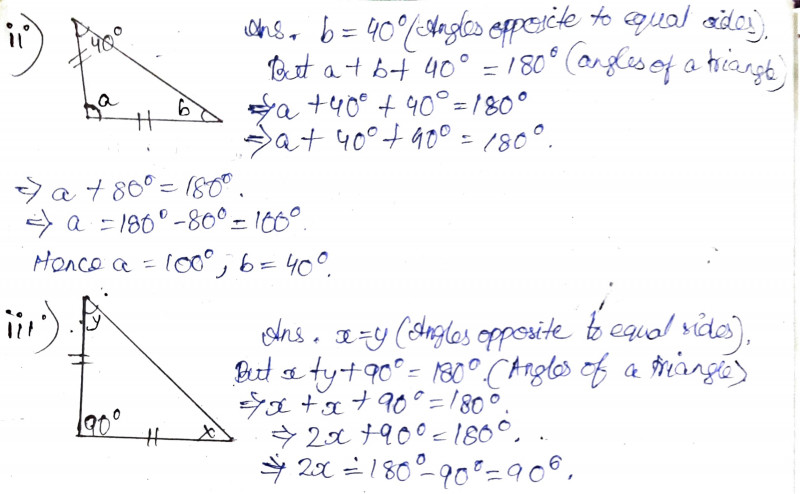 ii) 40° a b
Ans. b = 40° (Angles opposite to equal sides).
But a + b + 40° = 180° (angles of a triangle)
⇒ a + 40° + 40° = 180°
⇒ a + 40° + 40° = 180°.
⇒ a + 80° = 180°.
⇒ a = 180° - 80° = 100°.
Hence a = 100°, b = 40°.
iii) y 90° x
Ans. x = y (Angles opposite to equal sides).
But x + y + 90° = 180°. (Angles of a triangle)
⇒ x + x + 90° = 180°.
⇒ 2x + 90° = 180°.
⇒ 2x = 180° - 90° = 90°.